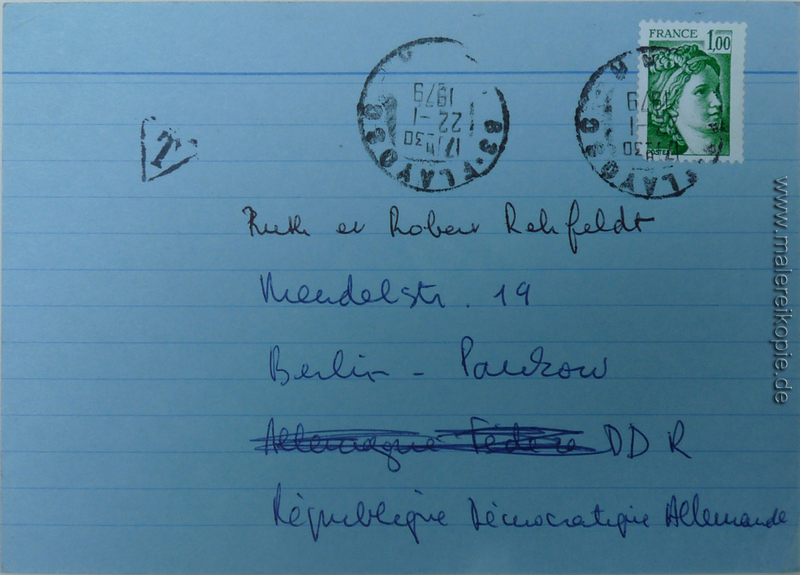 FRANCE 1,00
83 - FLAYOSC
17H30
22-1
1979
83 - FLAYOSC
17H30
-1
1979
T
Ruth et Robert Rehfeldt
Mendelstr. 19
Berlin - Pankow
Allemagne Fédéra DDR
République Démocratique Allemande
www.malereikopie.de